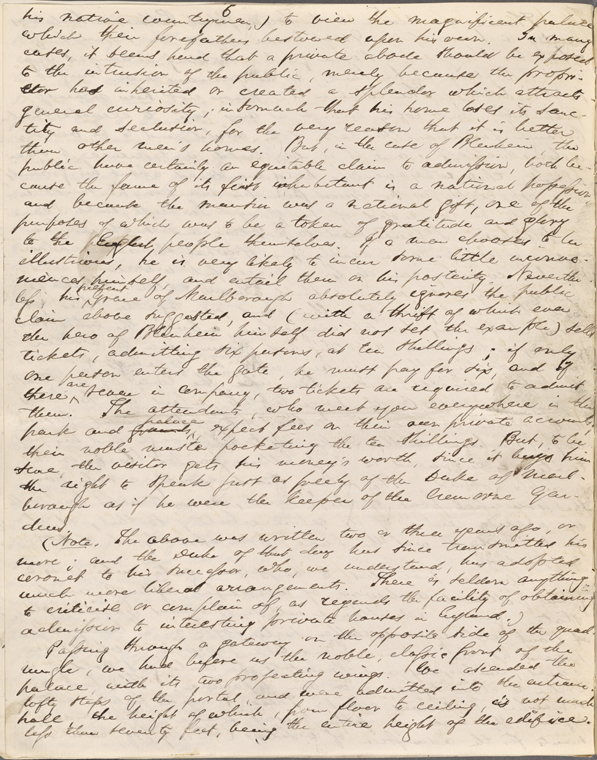 6
his native countrymen,) to view the magnificent palace
which their forefathers bestowed upon his own. In many
cases, it seems hard that a private abode should be exposed
to the intrusion of the public, merely because the propri-
etor has inherited or created a splendor which attracts
general curiosity; insomuch that his home loses its sanc-
tity and seclusion, for the very reason that it is better
than other men's houses. But, in the case of Blenheim, the
public have certainly an equitable claim to admission, both be-
cause the fame of its first inhabitant is a national possession
and because the mansion was a national gift, one of the
purposes of which was to be a token of gratitude and glory
to the English people themselves. If a man chooses to be
illustrious, he is very likely to incur some little inconve-
niences himself, and entail them on his posterity. Neverthe-
less, his present Grace of Marlborough absolutely ignores the public
claim above suggested, and (with a thrift of which even
the hero of Blenheim himself did not set the example) sells
tickets, admitting six persons, at ten shillings; if only
one person enters the gate, he must pay for six, and if
there are seven in company, two tickets are required to admit
them. The attendants, who meet you everywhere in the
park and palace, expect fees on their own private account,
their noble master pocketing the ten shillings. But, to be
sure, the visitor gets his money's worth, since it buys him
the right to speak just as freely of the Duke of Marl-
borough as if he were the keeper of the Cremorne Gar-
dens.
(Note. The above was written two or three years ago, or
more; and the Duke of that day has since transmitted his
coronet to his successor, who, we understand, has adopted
much more liberal arrangements. There is seldom anything
to criticise or complain of, as regards the facility of obtaining
admission to interesting private houses in England.)
Passing through a gateway on the opposite side of the quad-
rangle, we had before us the noble, classic front of the
palace, with its two projecting wings. We ascended the
lofty steps of the portal, and were admitted into the entrance-
hall, the height of which, from floor to ceiling, is not much
less than seventy feet, being the entire height of the edifice.